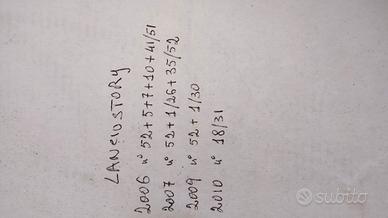 LANCIOSTORY
2006 n° 52+5+7+10+41/51
2007 n° 52+1/26+35/52
2009 n° 52+1/30
2010 n° 18/31
subito